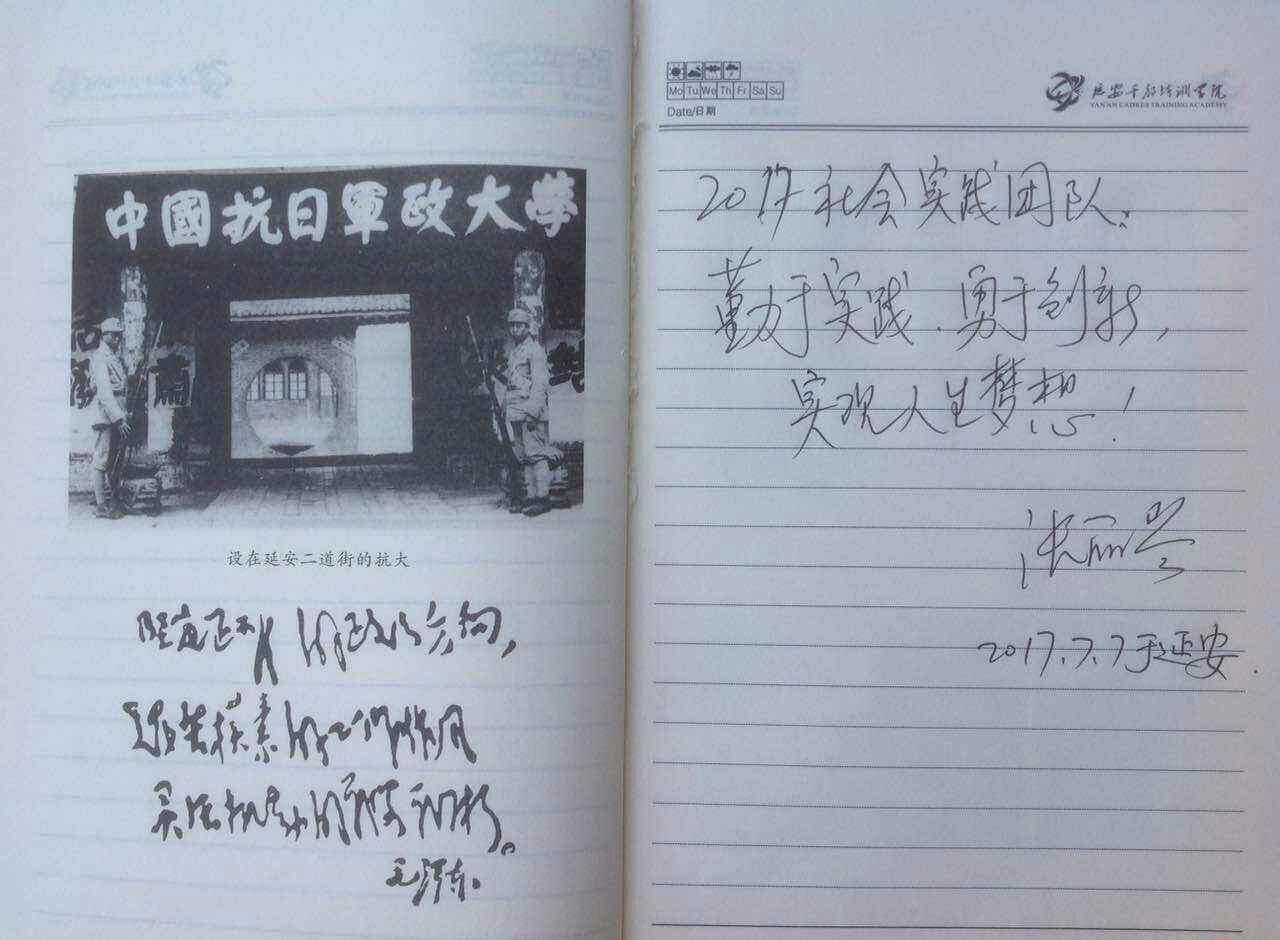 中國抗日軍政大學
设在延安二道街的抗大
坚定正确的政治方向，
艰苦朴素的工作作风
灵活机动的战略战术。
毛泽东。
Mo Tu We Th Fr Sa Su
Date/日期
延安干部培训学院
YAN'AN CADRES TRAINING ACADEMY
2017社会实践团队：
勤于实践、勇于创新，
实现人生梦想！
2017.7.7于延安.